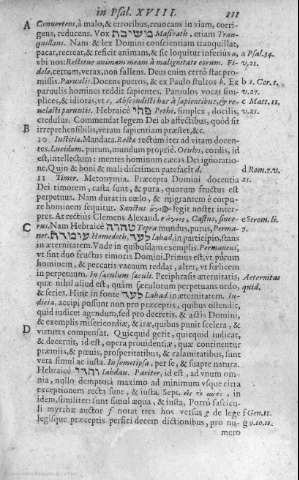 in Psal. XVIII. 211
A Convertens, à malo, & erroribus, eruncans in viam, corri-
gens, reducens. Vox משיבת Masivath, etiam Tran-
quillans. Nam & lex Domini conscientiam tranquillat,
pacat, recreat, & reficit animam, & sic loquitur inferius a Psal. 34.
ubi nos: Restitue animam meam à malignitate eorum. Fi- v. 21.
dele, certum, verax, non fallens. Deus enim certò stat pro-
missis. Parvulis: Docens pueros, & ex Paulo stultos b. Ex b 1. Cor. 1.
parvulis homines reddit sapientes. Parvulos vocat sim- v. 27.
plices, & idiotas, ut c. Abscondisti hæc à sapientibus, & re- c Matt. 11.
velasti parvulis. Hebraicè פתי Pethi, simplex, docilis, v. 25.
credulus. Commendat legem Dei ab effectibus, quod sit
B irreprehensibilis, verum sapientiam præstet, & c.
10 Justitia. Mandata. Recta rectum iter ad vitam docen-
tes. Lucidum, purum, mundum propriè. Oculos, cordis, id
est, intellectum: mentes hominum cæcas Dei ignoratio-
ne. Quin & boni & mali discrimen patefacit d. d Rom. 7. v.
11 Timor. Metonymia. Præcepta Domini docentia
Dei timorem, casta sunt, & pura, quorum fructus est
perpetuus. Nam durat in cælo, & migrantem è corpo-
re hominem sequitur. Sanctus legit noster inter-
pres. At rectiùs Clemens Alexand. Castus, since-
C rus. Nam Hebraicè טהורה Tegra mundus, purus, Perma-
net. עומדת Homedeth, לעד lahad, in participio, stans
in æternitatem. Vnde in quibusdam exemplis. Permanens,
ut sint duo fructus timoris Domini. Primus est, ut purum
hominem, & peccatis vacuum reddat, alter, ut servetur
in perpetuum. In sæculum sæculi. Periphrasis æternitatis, Æternitas
quæ nihil aliud est, quàm sæculorum perpetuus ordo, quid.
& series. Hinc in fonte לעד lahad in æternitatem. Iu-
dicia, accipi possunt non pro præceptis, quibus ostendit,
quid judicet agendum, sed pro decretis, & actis Domini,
& exemplis misericordiæ, & iræ, quibus punit scelera, &
D virtutes compensat. Quicquid gerit, quicquid judicat,
& decernit, id est, opera providentiæ, quæ continentur
præmiis, & pœnis, prosperitatibus, & calamitatibus, sunt
vera simul ac justa. In semetipsa, per se, & suapte natura.
Hebraicè יחדו Iahdau. Pariter, id est, ad unum om-
nia, nullo dempto à maximo ad minimum usque citra
exceptionem recta sunt, & justa, Sept. in
idem, similiter: sunt simul æqua, & justa. Porrò fascicu-
li myrrhæ auctor f notat tres hos versus g de lege f Gen. 11.
legisque præceptis perfici decem dictionibus, pro nu- g v. 10. 11.
mero